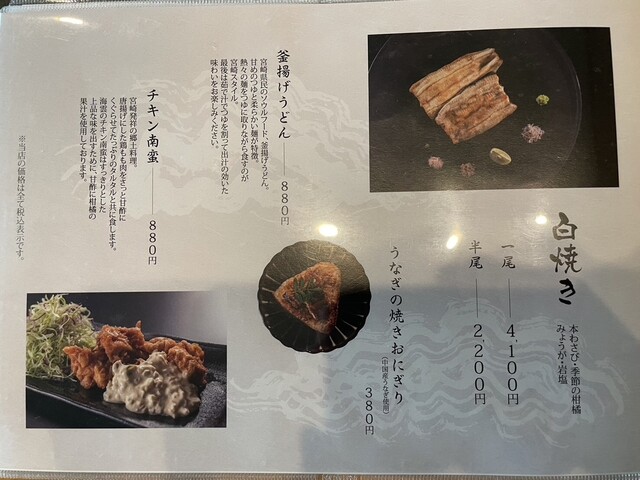 白焼き
本わさび・季節の柑橘
みょうが・岩塩
一尾 4,100円
半尾 2,200円
うなぎの焼きおにぎり
(中国産うなぎ使用)
380円
釜揚げうどん 880円
宮崎県民のソウルフード、釜揚げうどん。
甘めのつゆと柔らかい麺が特徴。
熱々の麺をつゆに取りながら食すのが
宮崎スタイル。
最後は茹で汁でつゆを割って出汁の効いた
味わいをお楽しみください。
チキン南蛮 880円
宮崎発祥の郷土料理。
唐揚げにした鶏もも肉をさっと甘酢に
くぐらせてたっぷりのタルタルと共に食します。
海雲のチキン南蛮はすっきりとした
上品な味を出すために、甘酢に柑橘の
果汁を使用しております。
※当店の価格は全て税込表示です。